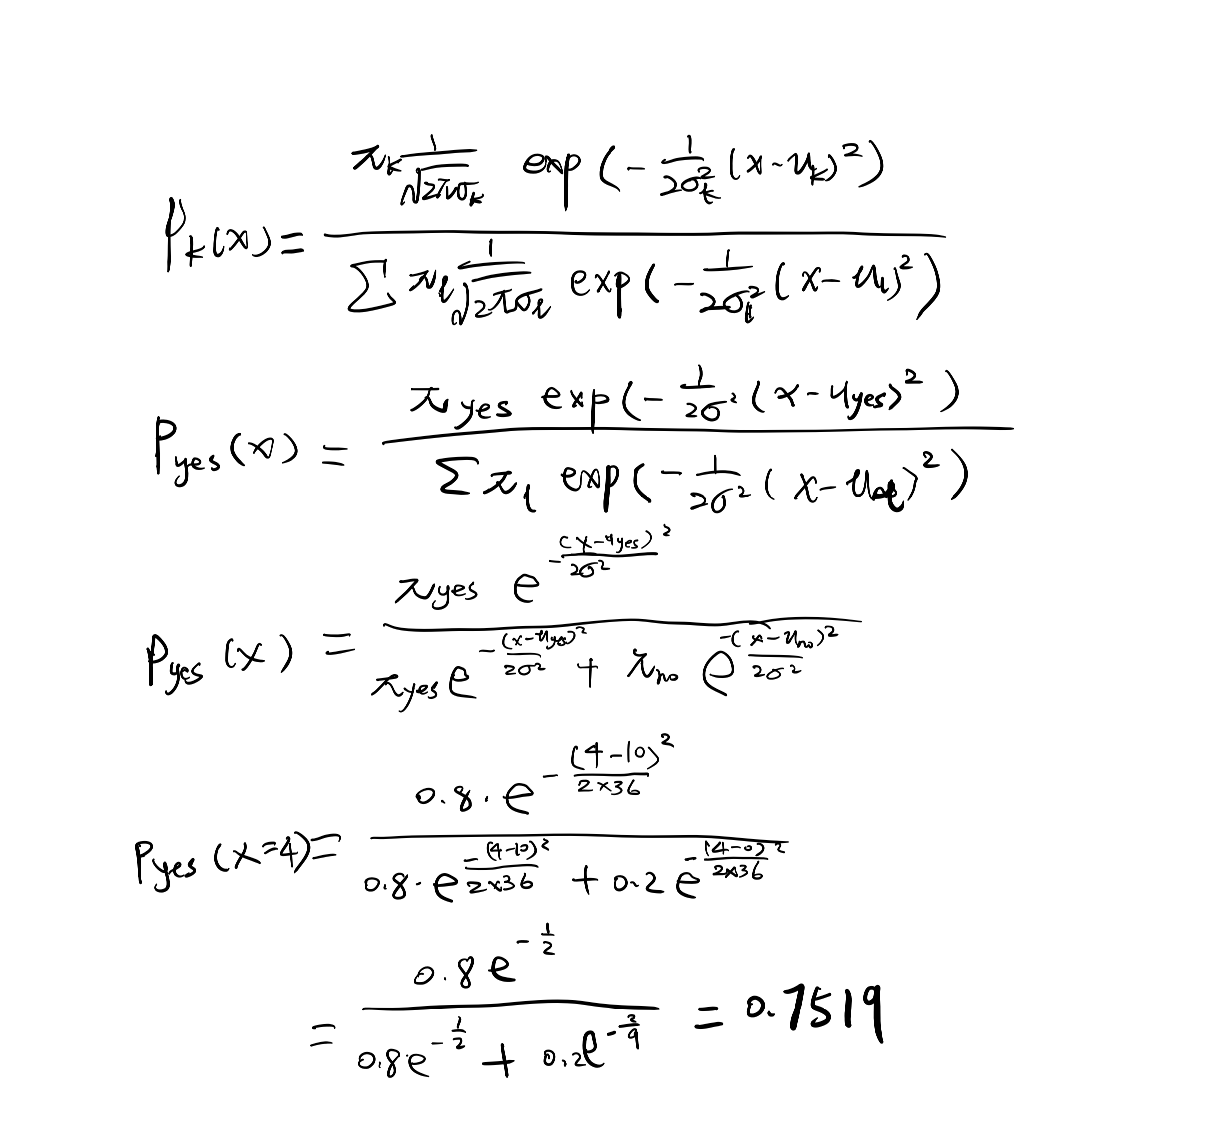 pₖ(x) = (πₖ 1/√(2πσₖ) exp(-1/(2σₖ²) (x-uₖ)²)) / (∑ πₗ 1/√(2πσₗ) exp(-1/(2σₗ²) (x-uₗ)²))
P_yes(x) = (π_yes exp(-1/(2σ²) (x-u_yes)²)) / (∑ πₗ exp(-1/(2σ²) (x-uₗ)²))
P_yes(x) = (π_yes e^(-(x-u_yes)²/(2σ²))) / (π_yes e^(-(x-u_yes)²/(2σ²)) + π_no e^(-(x-u_no)²/(2σ²)))
P_yes(x=4) = (0.8·e^(-(4-10)²/(2×36))) / (0.8·e^(-(4-10)²/(2×36)) + 0.2 e^(-(4-0)²/(2×36)))
= (0.8e^(-1/2)) / (0.8e^(-1/2) + 0.2e^(-2/9)) = 0.7519